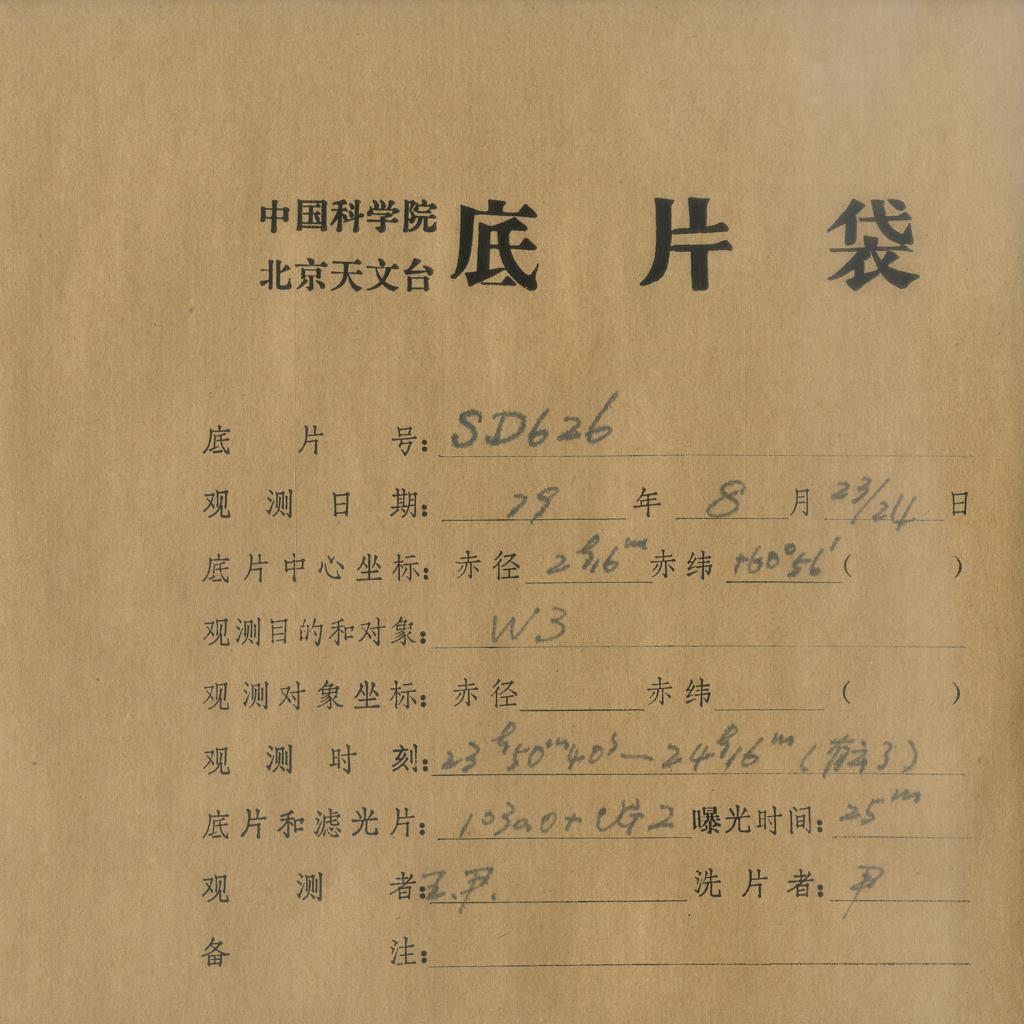 中国科学院
北京天文台
底片袋
底片号: SD626
观测日期: 79 年 8 月 23/24 日
底片中心坐标: 赤径 2h16m 赤纬 +60°56′ ( )
观测目的和对象: W3
观测对象坐标: 赤径 赤纬 ( )
观测时刻: 23h50m40s—24h16m (有云了)
底片和滤光片: 103aO+UG2 曝光时间: 25m
观测者: 王.尹. 洗片者: 尹
备注: